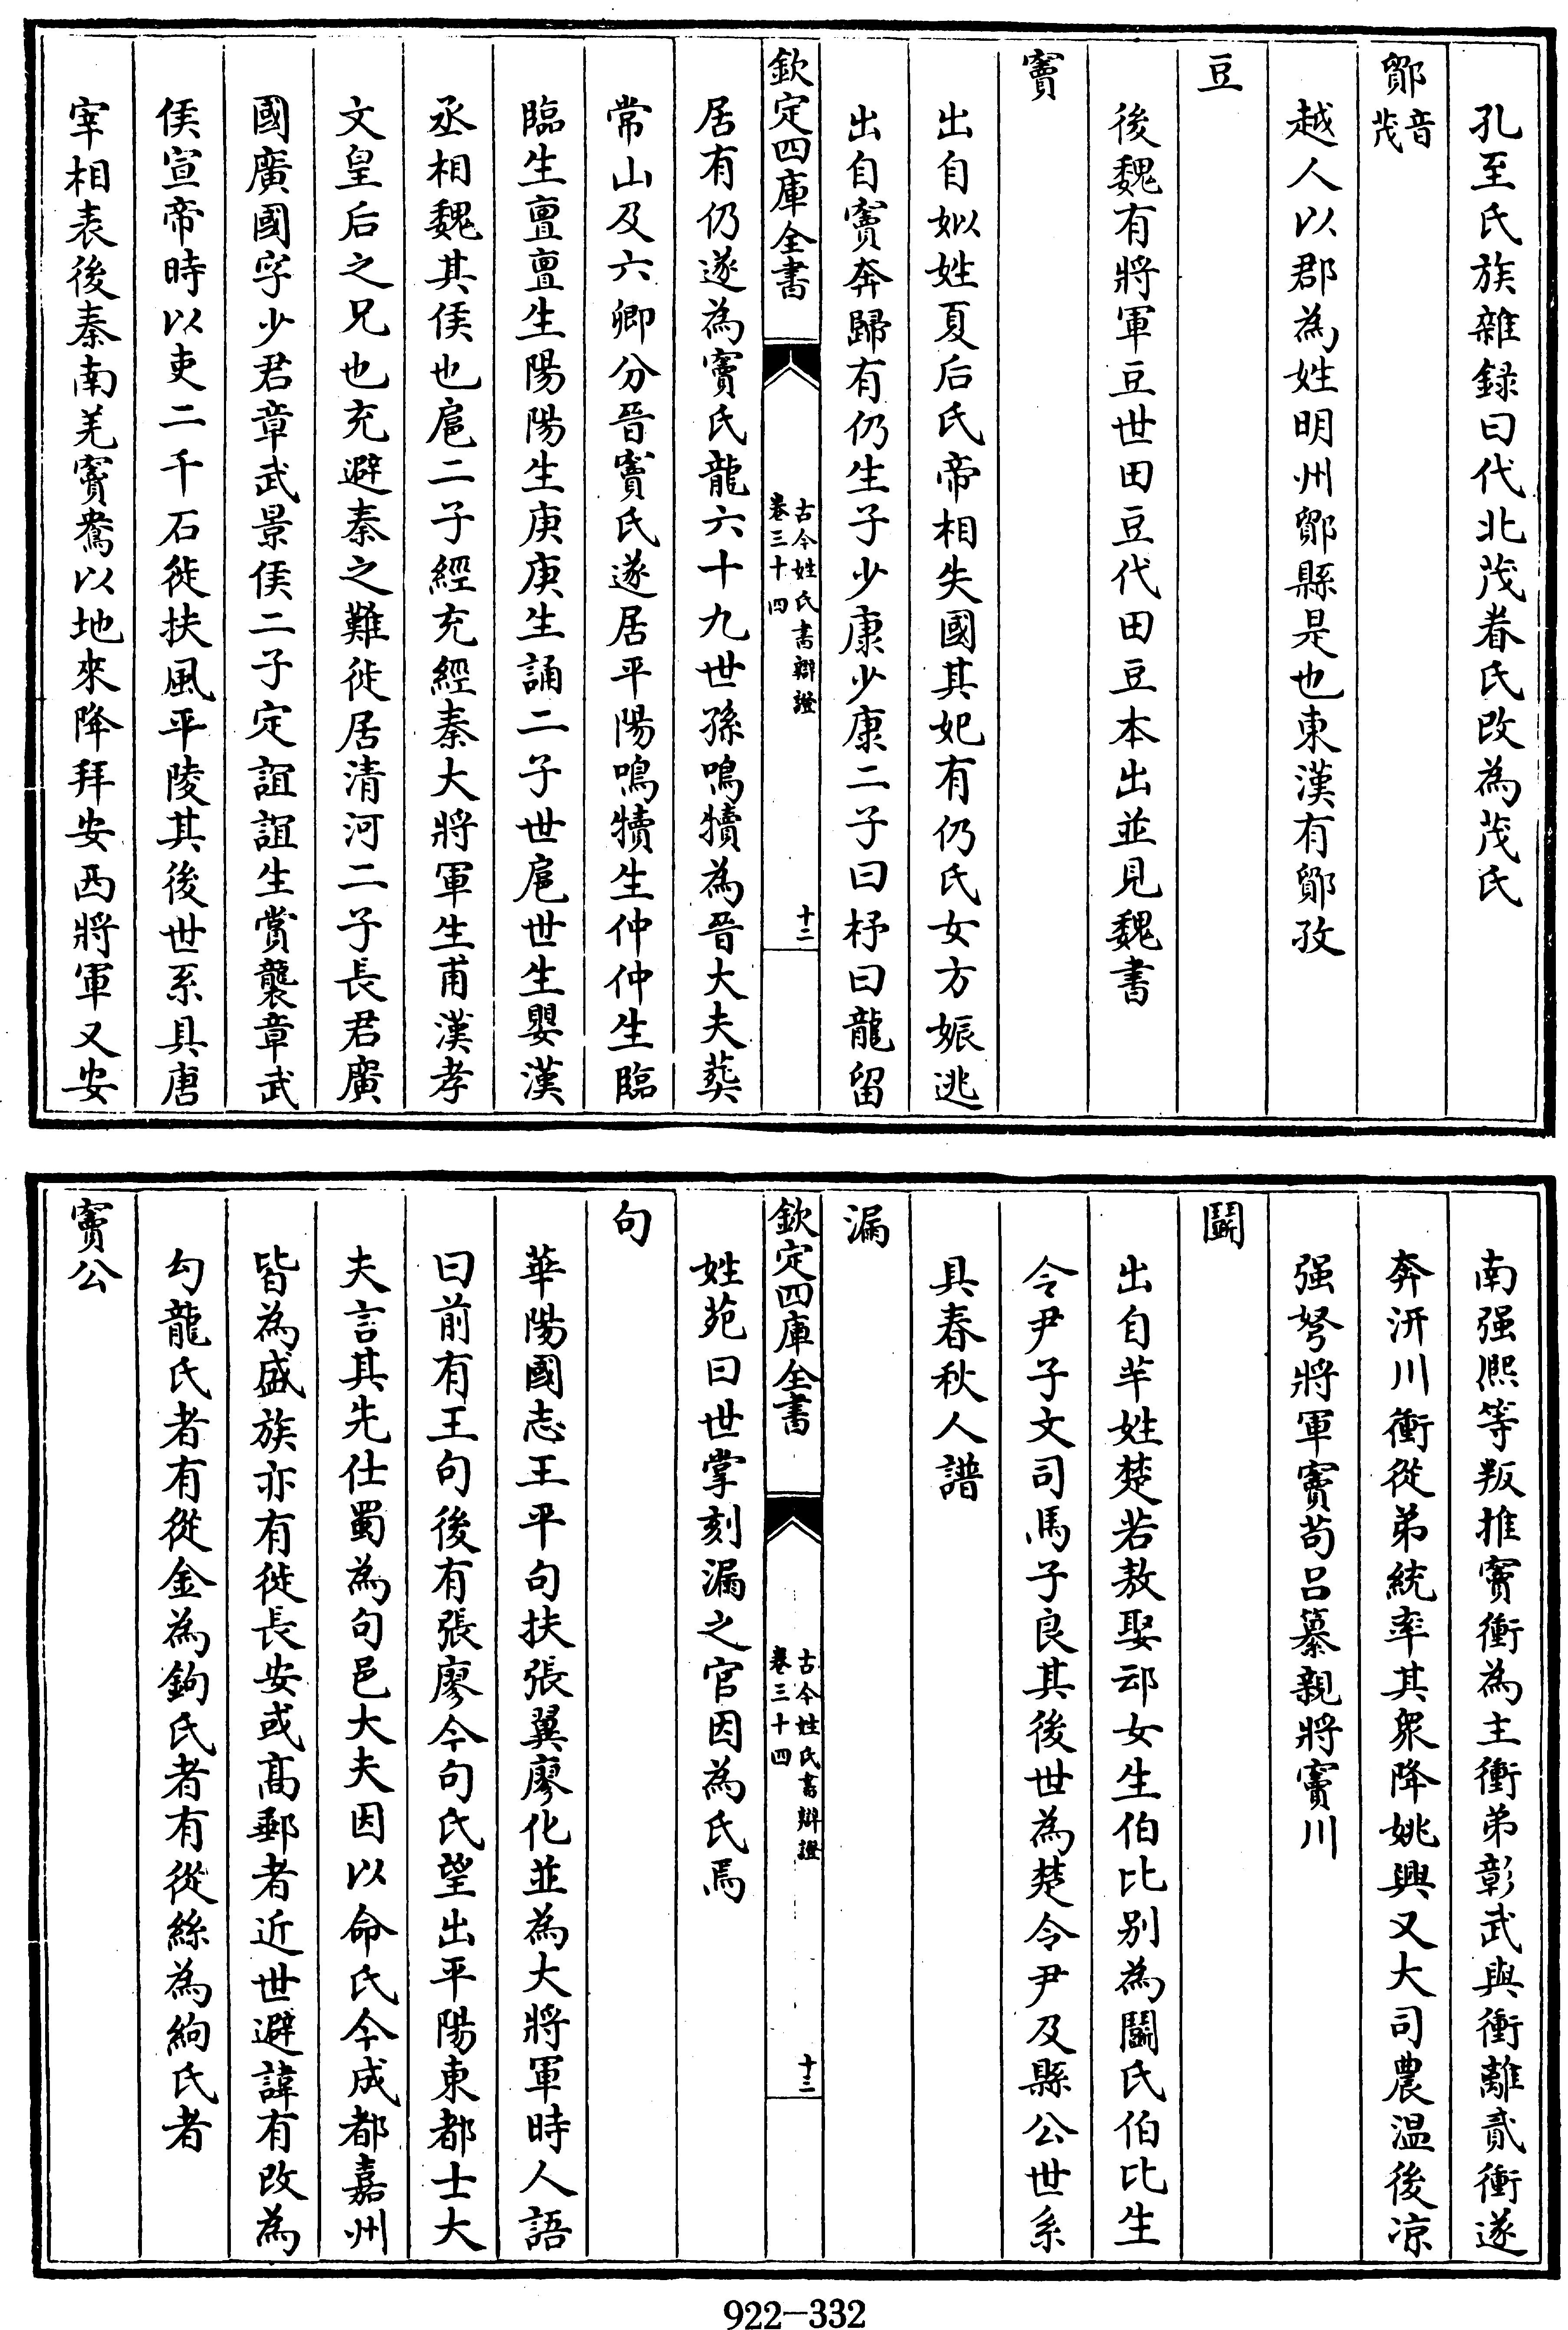 孔至氏族雜録曰代北茂眷氏改為茂氏
鄮音茂
越人以郡為姓明州鄮縣是也東漢有鄮孜
豆
後魏有將軍豆世田豆代田豆本出並見魏書
竇
出自姒姓夏后氏帝相失國其妃有仍氏女方娠逃
出自竇奔歸有仍生子少康少康二子曰杼曰龍留
欽定四庫全書
古今姓氏書辯證
卷三十四
十二
居有仍遂為竇氏龍六十九世孫鳴犢為晉大夫葬
常山及六卿分晉竇氏遂居平陽鳴犢生仲仲生臨
臨生亶亶生陽陽生庚庚生誦二子世扈世生嬰漢
丞相魏其侯也扈二子經充經秦大將軍生甫漢孝
文皇后之兄也充避秦之難徙居清河二子長君廣
國廣國字少君章武景侯二子定誼誼生賞襲章武
侯宣帝時以吏二千石徙扶風平陵其後世系具唐
宰相表後秦南羌竇鴦以地來降拜安西將軍又安
南强熈等叛推竇衝為主衝弟彰武與衝離貳衝遂
奔汧川衝從弟統率其衆降姚興又大司農温後凉
强弩將軍竇苟吕纂親將竇川
鬭
出自芊姓楚若敖娶䢵女生伯比别為鬭氏伯比生
令尹子文司馬子良其後世為楚令尹及縣公世系
具春秋人譜
漏
欽定四庫全書
古今姓氏書辯證
卷三十四
十三
姓苑曰世掌刻漏之官因為氏焉
句
華陽國志王平句扶張翼廖化並為大將軍時人語
曰前有王句後有張廖今句氏望出平陽東都士大
夫言其先仕蜀為句邑大夫因以命氏今成都嘉州
皆為盛族亦有徙長安或高郵者近世避諱有改為
勾龍氏者有從金為鉤氏者有從絲為絇氏者
竇公
922-332